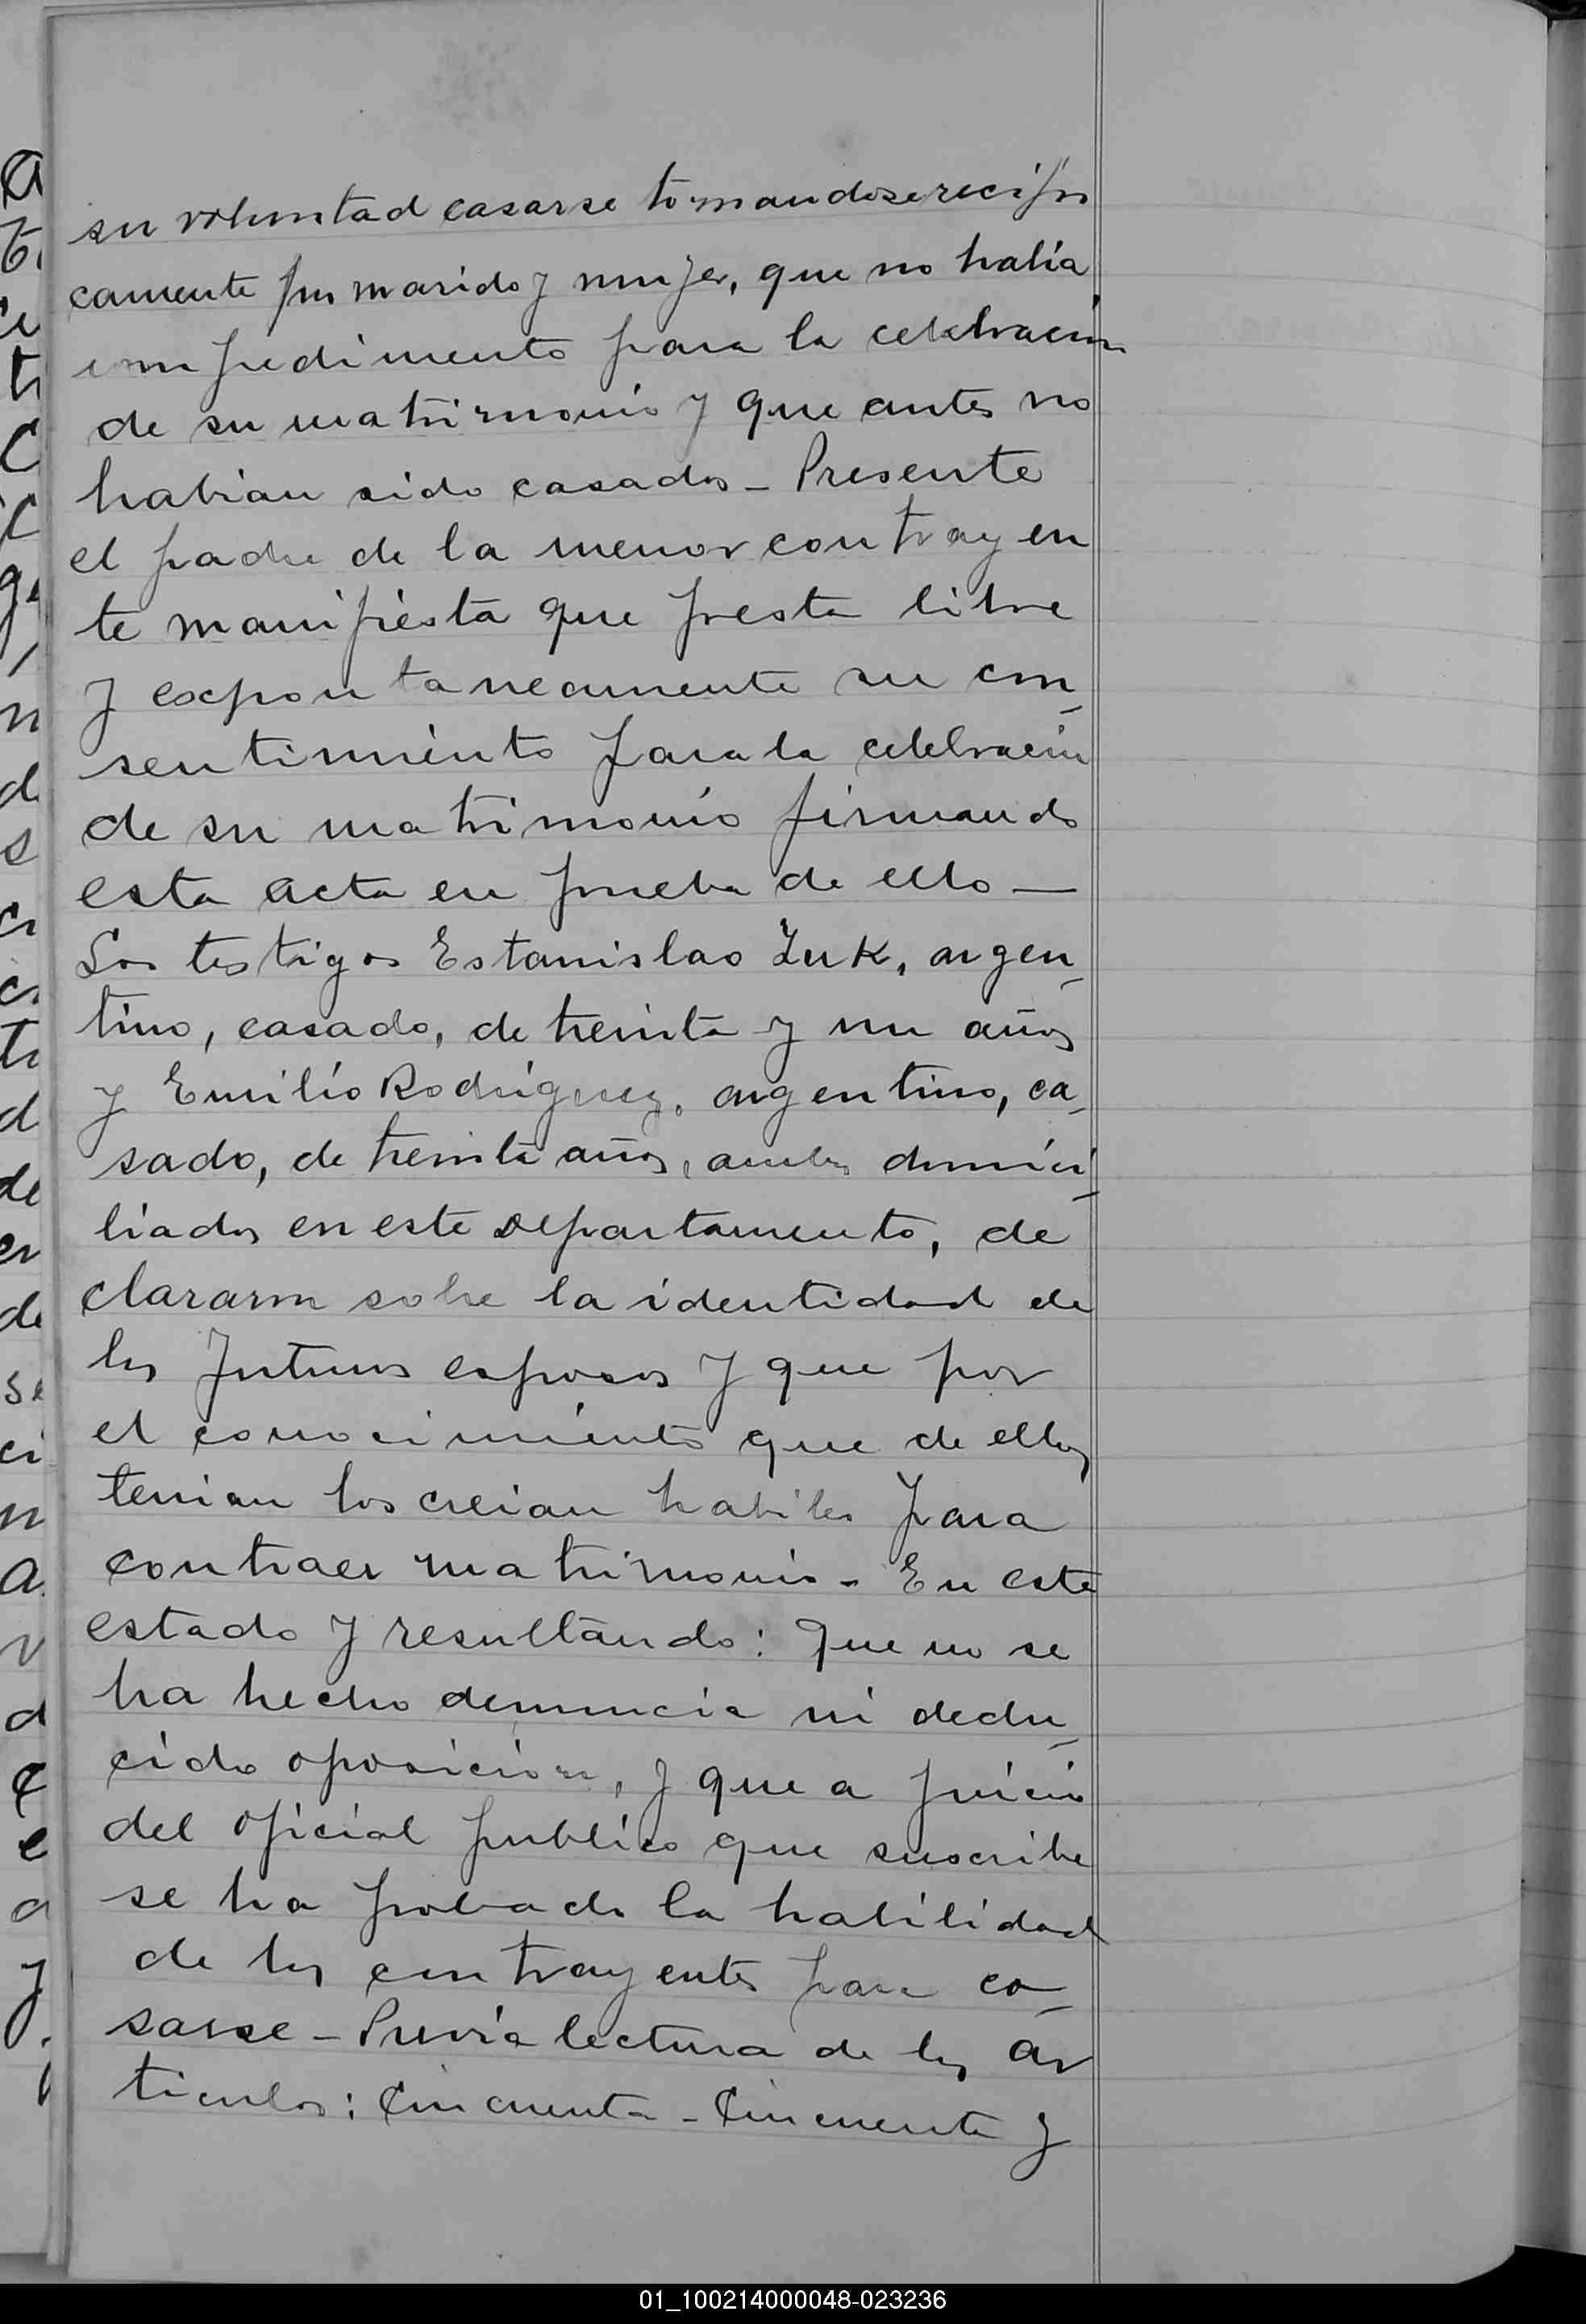 su voluntad casarse tomandose recipro
camente por marido y mujer, que no habia
impedimento para la celebración
de su matrimonio y que antes no
habian sido casados - Presente
el padre de la menor contrayen
te manifiesta que presta libre
y expontaneamente su con-
sentimiento para la celebración
de su matrimonio firmando
esta acta en prueba de ello —
Los testigos Estanislao Zuk, argen-
tino, casado, de treinta y un años
y Emilio Rodriguez, argentino, ca-
sado, de treinta años, ambos domici-
liados en este Departamento, de
clararon sobre la identidad de
los futuros esposos y que por
el conocimiento que de ellos
tenian los creian habiles para
contraer matrimonio - En este
estado y resultando: que no se
ha hecho denuncia ni dedu-
cido oposición, y que a juicio
del oficial publico que suscribe
se ha probado la habilidad
de los contrayentes para ca-
sarse - Previa lectura de los ar
ticulos: cincuenta - cincuenta y
01_100214000048-023236